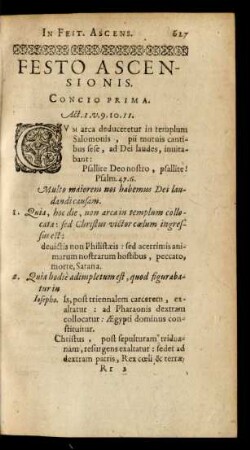 IN FEST. ASCENS. 627
FESTO ASCEN-
SIONIS.
CONCIO PRIMA.
Act. 1. v. 9. 10. 11.
CVM arca deduceretur in templum
Salomonis, pii mutuis cantibus
sese, ad Dei laudes, invitabant:
Psallite Deo nostro, psallite!
Psalm. 47. 6.
Multo maiorem nos habemus Dei lau-
dandi causam.
1. Quia, hoc die, non arca in templum collo-
cata: sed Christus victor cælum ingres-
sus est:
devictis non Philistæis: sed acerrimis ani-
marum nostrarum hostibus, peccato,
morte, Satana.
2. Quia hodiè adimpletum est, quod figuraba-
tur in
Iosepho. Is, post triennalem carcerem, ex-
altatur: ad Pharaonis dextram
collocatur: Ægypti dominus con-
stituitur.
Christus, post sepulturam tridua-
nam, resurgens exaltatur: sedet ad
dextram patris, Rex cœli & terræ
Rr 2